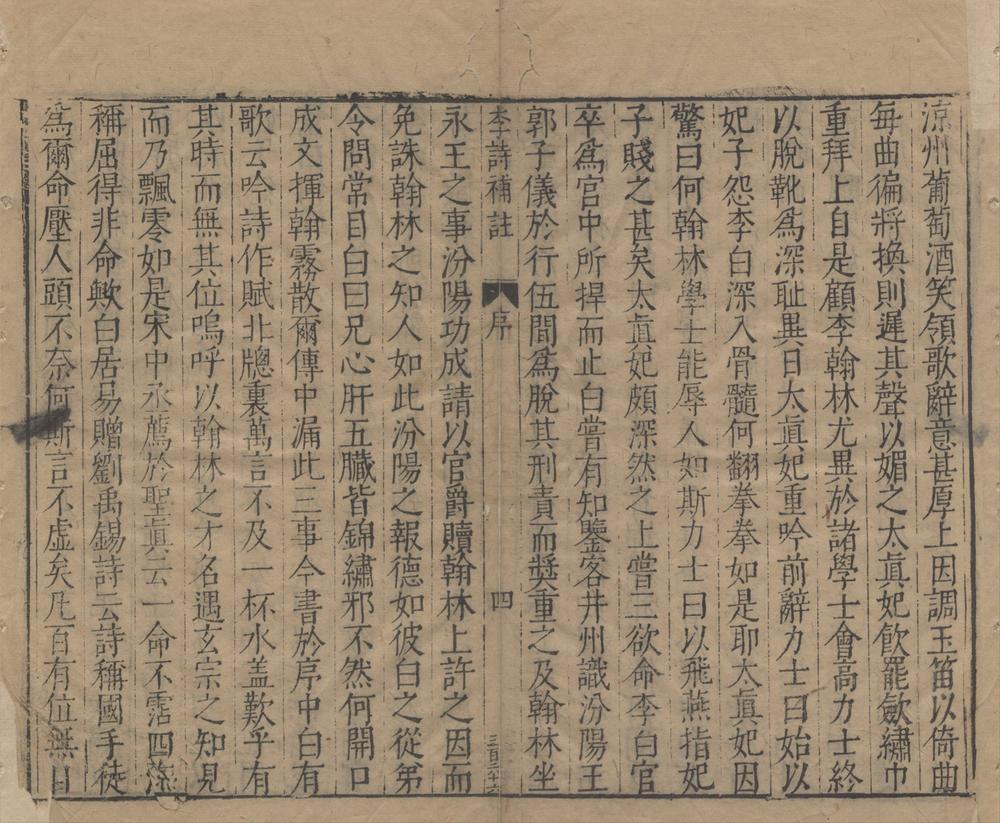 涼州葡萄酒笑領歌辭意甚厚上因調玉笛以倚曲
每曲徧將換則遲其聲以媚之太眞妃飮罷斂繡巾
重拜上自是顧李翰林尤異於諸學士會高力士終
以脫靴爲深耻異日大眞妃重吟前辭力士曰始以
妃子怨李白深入骨髓何翻拳拳如是耶太眞妃因
驚曰何翰林學士能辱人如斯力士曰以飛燕指妃
子賤之甚矣太眞妃頗深然之上嘗三欲命李白官
卒爲宮中所捍而止白嘗有知鑒客井州識汾陽王
郭子儀於行伍間爲脫其刑責而奬重之及翰林坐
李詩補註 序 四
永王之事汾陽功成請以官爵贖翰林上許之因而
免誅翰林之知人如此汾陽之報德如彼白之從弟
令問常目白曰兄心肝五臟皆錦繡邪不然何開口
成文揮翰霧散爾傳中漏此三事今書於序中白有
歌云吟詩作賦北牕裏萬言不及一杯水盖歎乎有
其時而無其位嗚呼以翰林之才名遇玄宗之知見
而乃飄零如是宋中丞薦於聖眞云一命不霑四海
稱屈得非命歟白居易贈劉禹錫詩云詩稱國手徒
爲爾命壓人頭不奈何斯言不虛矣凡百有位無自